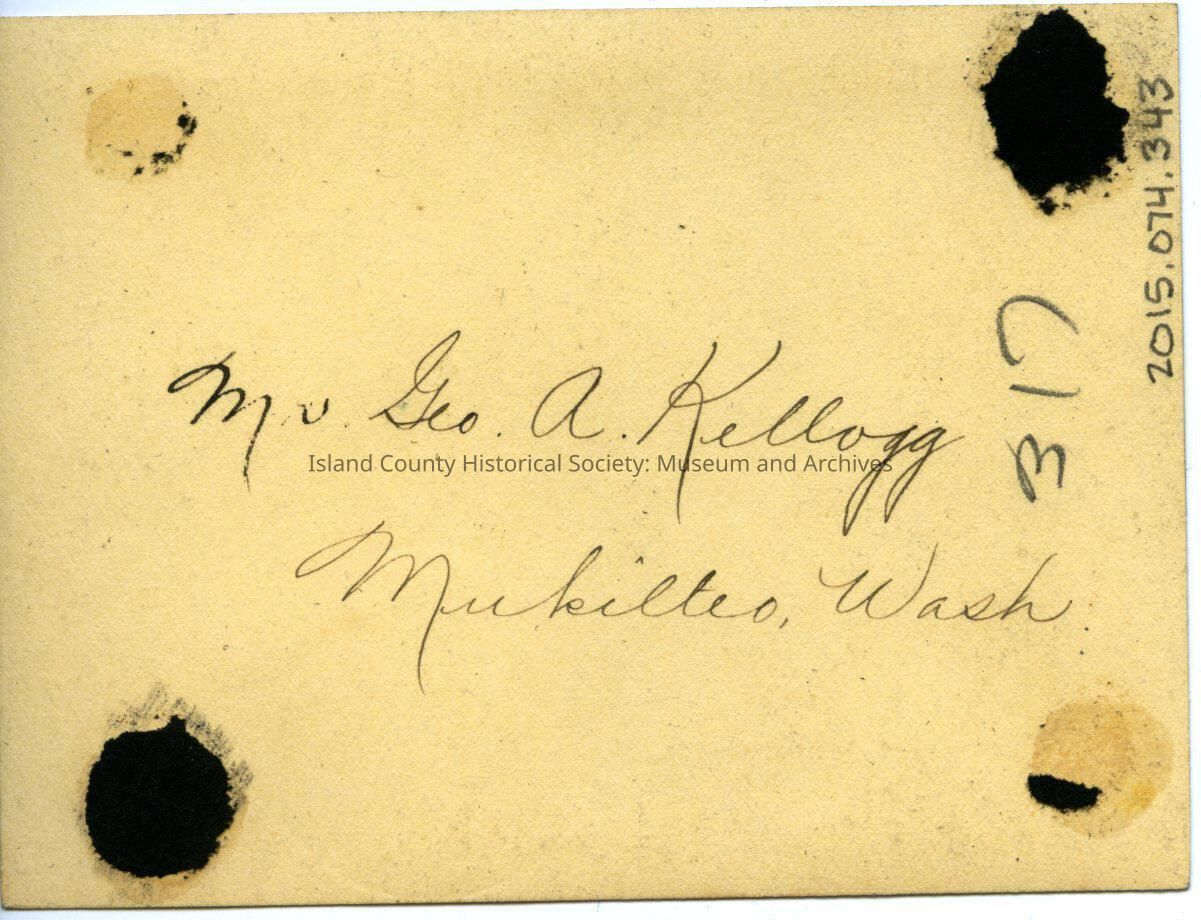 Mr. Geo. A. Kellogg
Island County Historical Society: Museum and Archives
Mukilteo, Wash.
317
2015.074.343